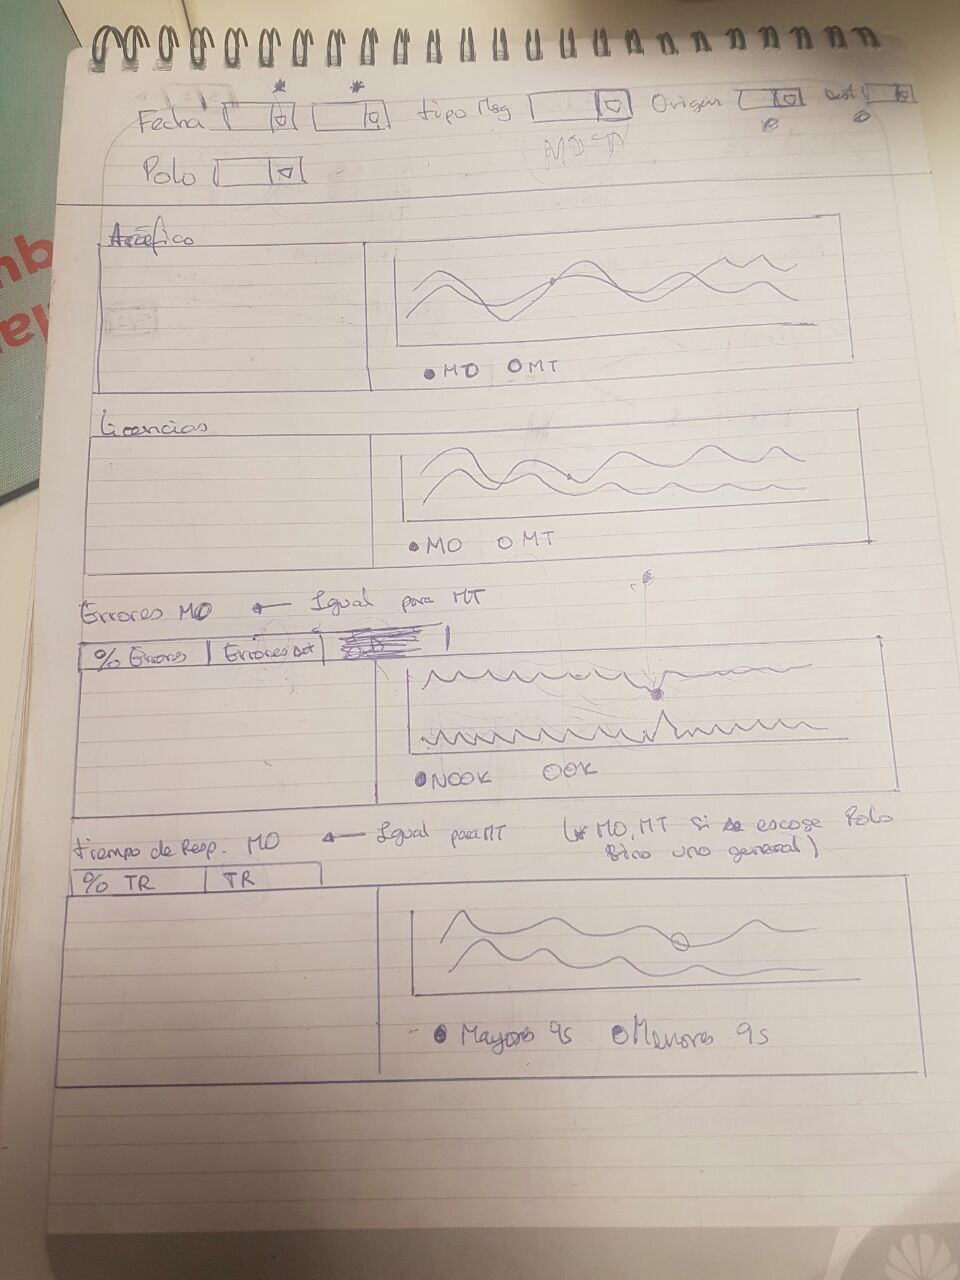 Fecha * * tipo Msg Origen Dest
Polo
Tráfico
MO MT
Licencias
MO MT
Errores MO ← Igual para MT
% Errores Errores Det
NOOK OK
tiempo de Resp. MO ← Igual para MT (* MO, MT si se escoge Polo
Sino uno general)
% TR TR
Mayores 9s Menores 9s